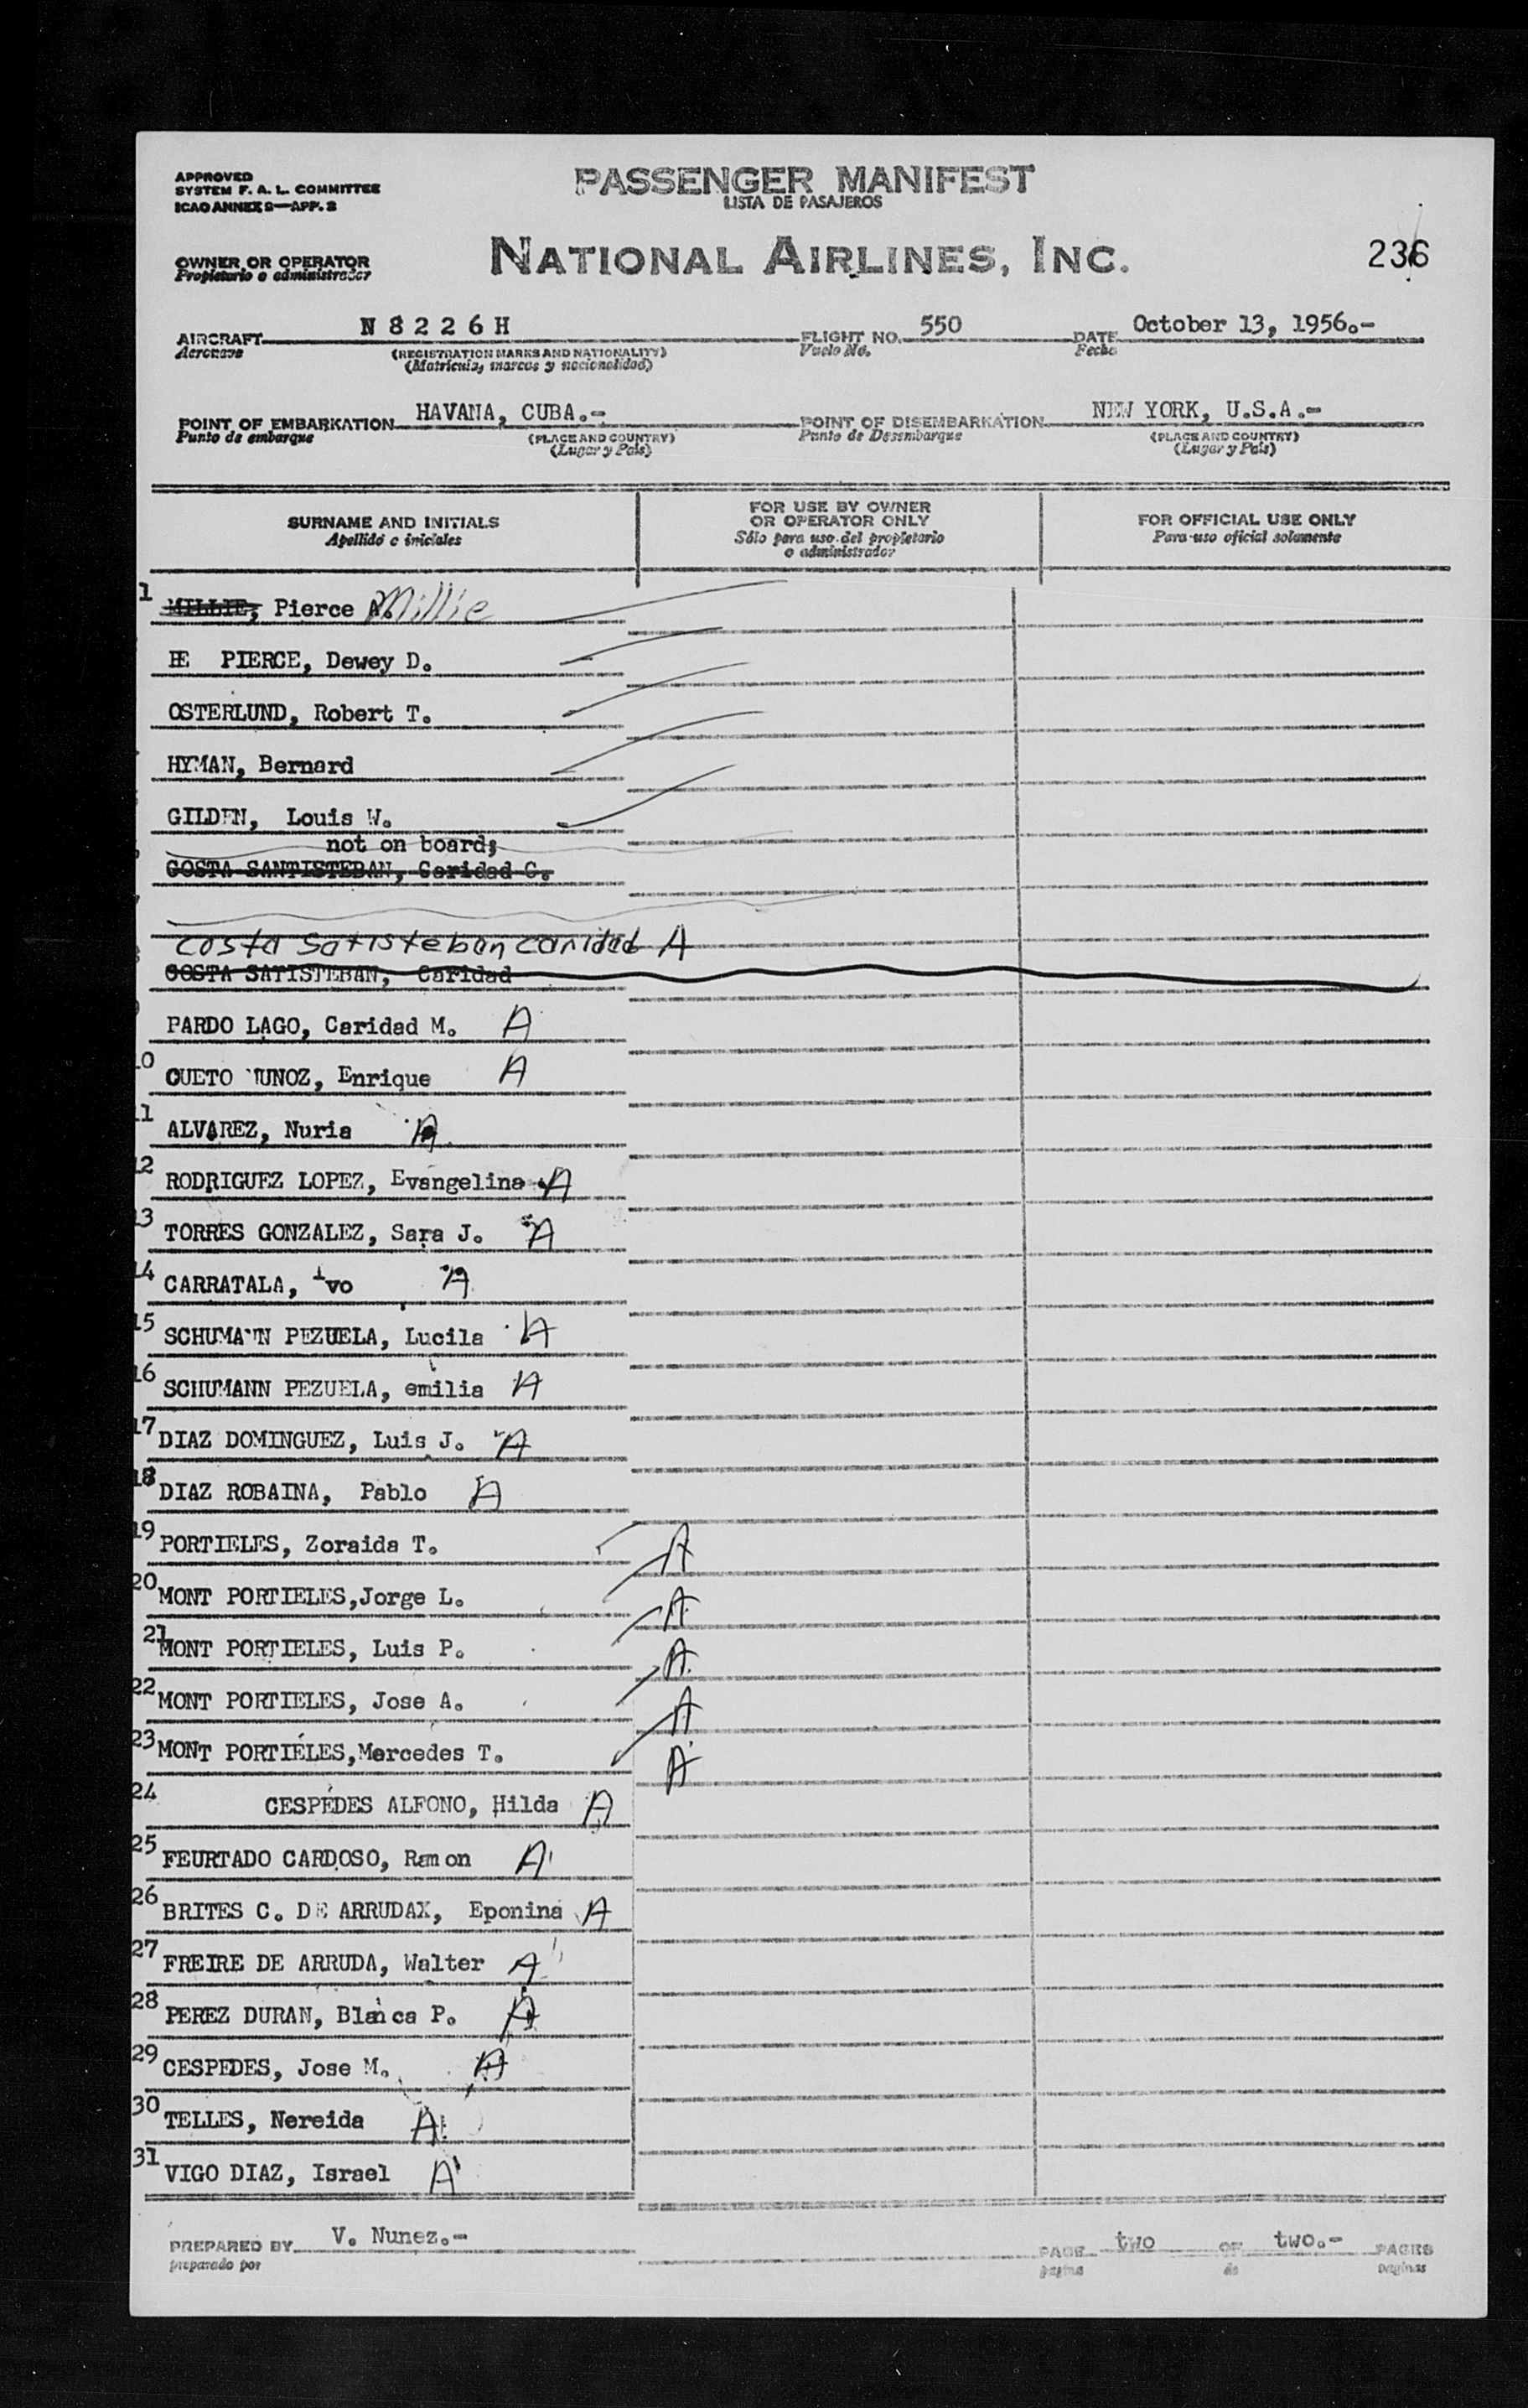 APPROVED
SYSTEM F. A. L. COMMITTEE
ICAO ANNEX 9—APP. 2
PASSENGER MANIFEST
LISTA DE PASAJEROS
OWNER OR OPERATOR
Propietario o administrador
NATIONAL AIRLINES, INC.
236
AIRCRAFT N 8 2 2 6 H FLIGHT NO. 550 DATE October 13, 1956.-
Aeronave (REGISTRATION MARKS AND NATIONALITY) Vuelo No. Fecha
(Matricula, marcas y nacionalidad)
POINT OF EMBARKATION HAVANA, CUBA.- POINT OF DISEMBARKATION NEW YORK, U.S.A.-
Punto de embarque (PLACE AND COUNTRY) Punto de Desembarque (PLACE AND COUNTRY)
(Lugar y Pais) (Lugar y Pais)
SURNAME AND INITIALS
Apellido e iniciales
FOR USE BY OWNER
OR OPERATOR ONLY
Sólo para uso del propietario
o administrador
FOR OFFICIAL USE ONLY
Para uso oficial solamente
1 MILLIE, Pierce A. Millie
PIERCE, Dewey D.
OSTERLUND, Robert T.
HYMAN, Bernard
GILDEN, Louis W.
not on board;
COSTA SANTISTEBAN, Caridad C.
Costa Satisteban caridad A
COSTA SATISTEBAN, Caridad
PARDO LAGO, Caridad M. A
10 CUETO MUNOZ, Enrique A
11 ALVAREZ, Nuria A
12 RODRIGUEZ LOPEZ, Evangelina A
13 TORRES GONZALEZ, Sara J. A
14 CARRATALA, Ivo A
15 SCHUMANN PEZUELA, Lucila A
16 SCHUMANN PEZUELA, emilia A
17 DIAZ DOMINGUEZ, Luis J. A
18 DIAZ ROBAINA, Pablo A
19 PORTIELES, Zoraida T. A
20 MONT PORTIELES,Jorge L. A
21 MONT PORTIELES, Luis P. A
22 MONT PORTIELES, Jose A. A
23 MONT PORTIELES,Mercedes T. A
24 CESPEDES ALFONO, Hilda A
25 FEURTADO CARDOSO, Ramon A
26 BRITES C. DE ARRUDAX, Eponina A
27 FREIRE DE ARRUDA, Walter A
28 PEREZ DURAN, Blanca P. A
29 CESPEDES, Jose M. A
30 TELLES, Nereida A
31 VIGO DIAZ, Israel A
PREPARED BY V. Nunez.- PAGE two OF two.- PAGES
preparado por pagina de paginas